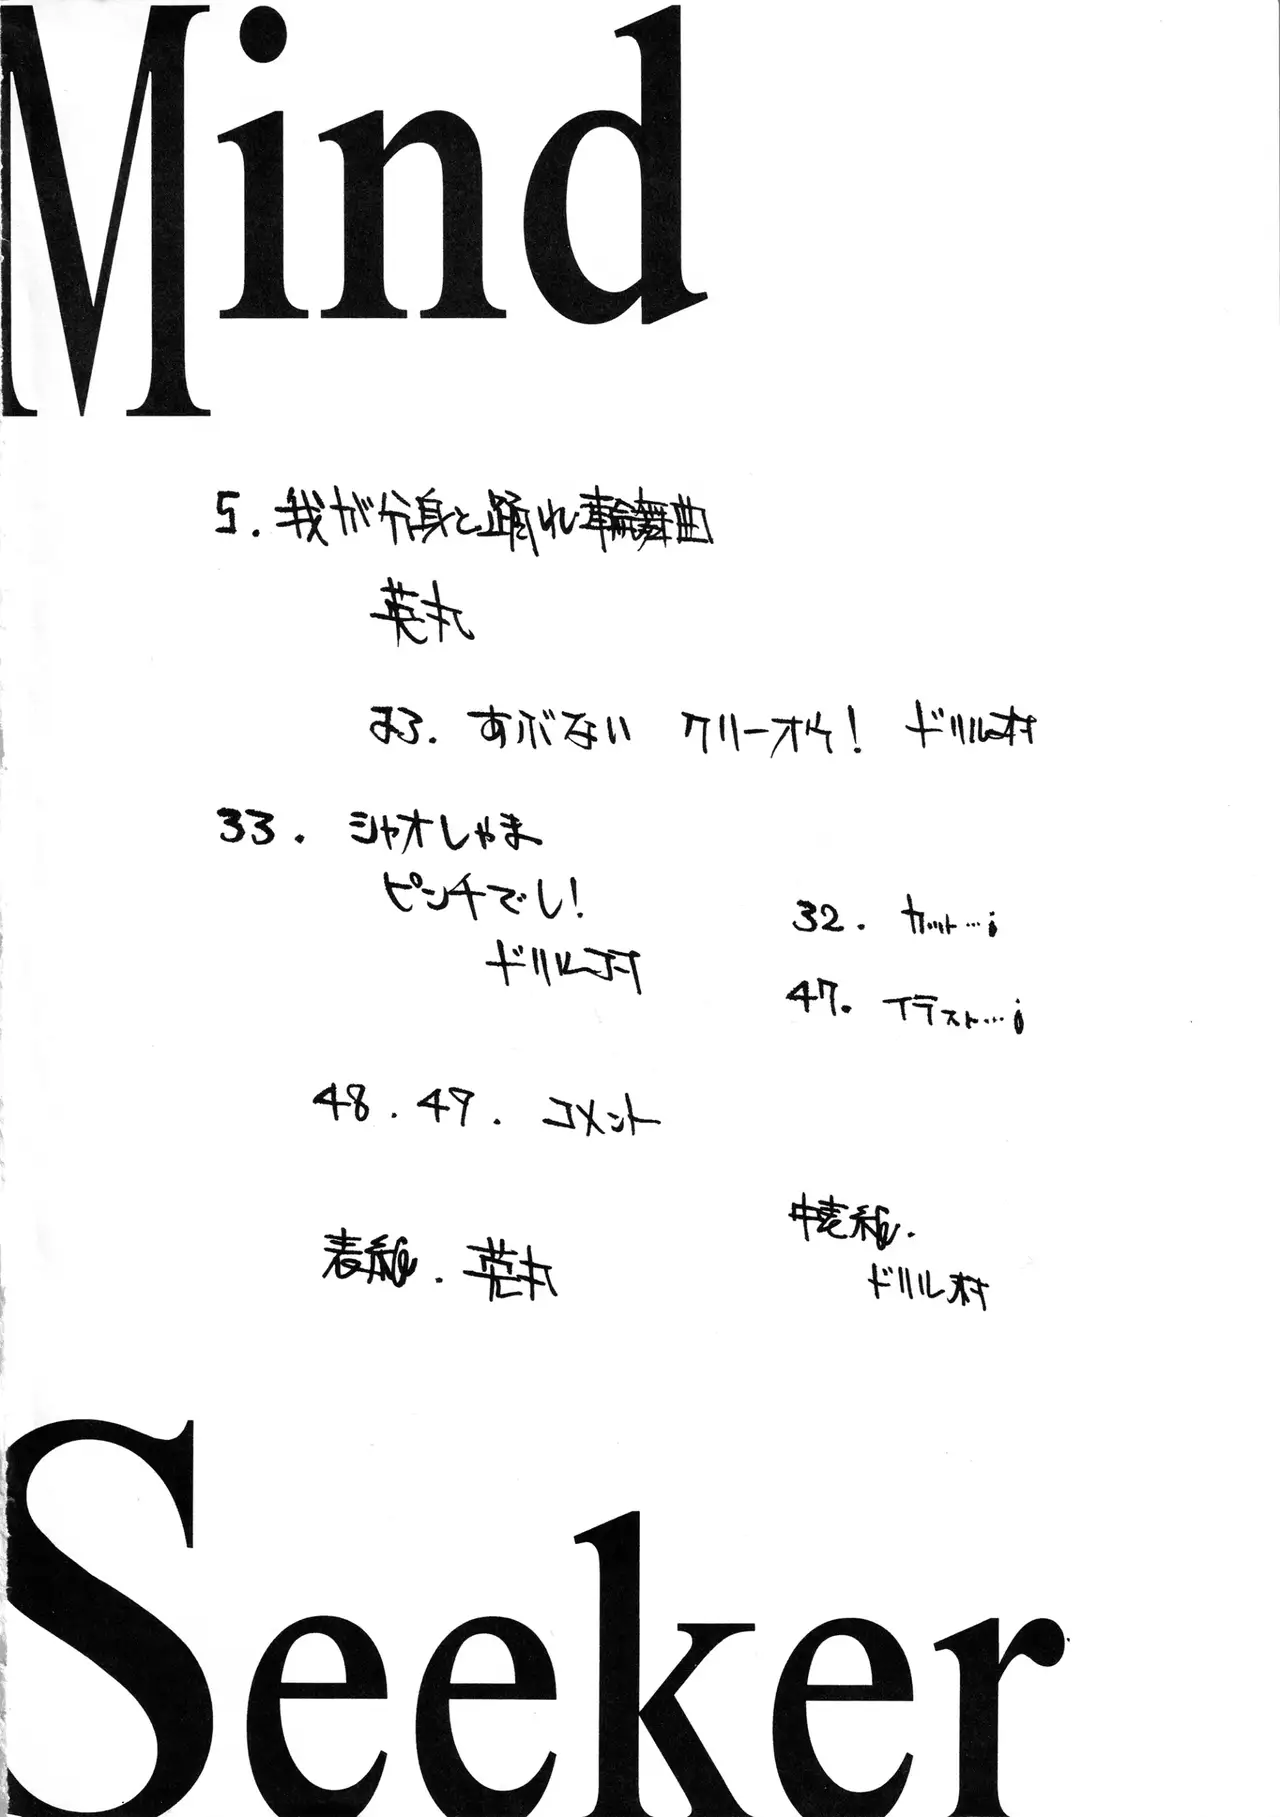 Mind
5. 我が分身と踊れ輪舞曲
英丸
23. あぶない クリーオウ! ドリル村
33. シャオしゃま
ピンチでし!
ドリル村
32. カット…i
47. イラスト…i
48. 49. コメント
表紙. 英丸
中表紙.
ドリル村
Seeker